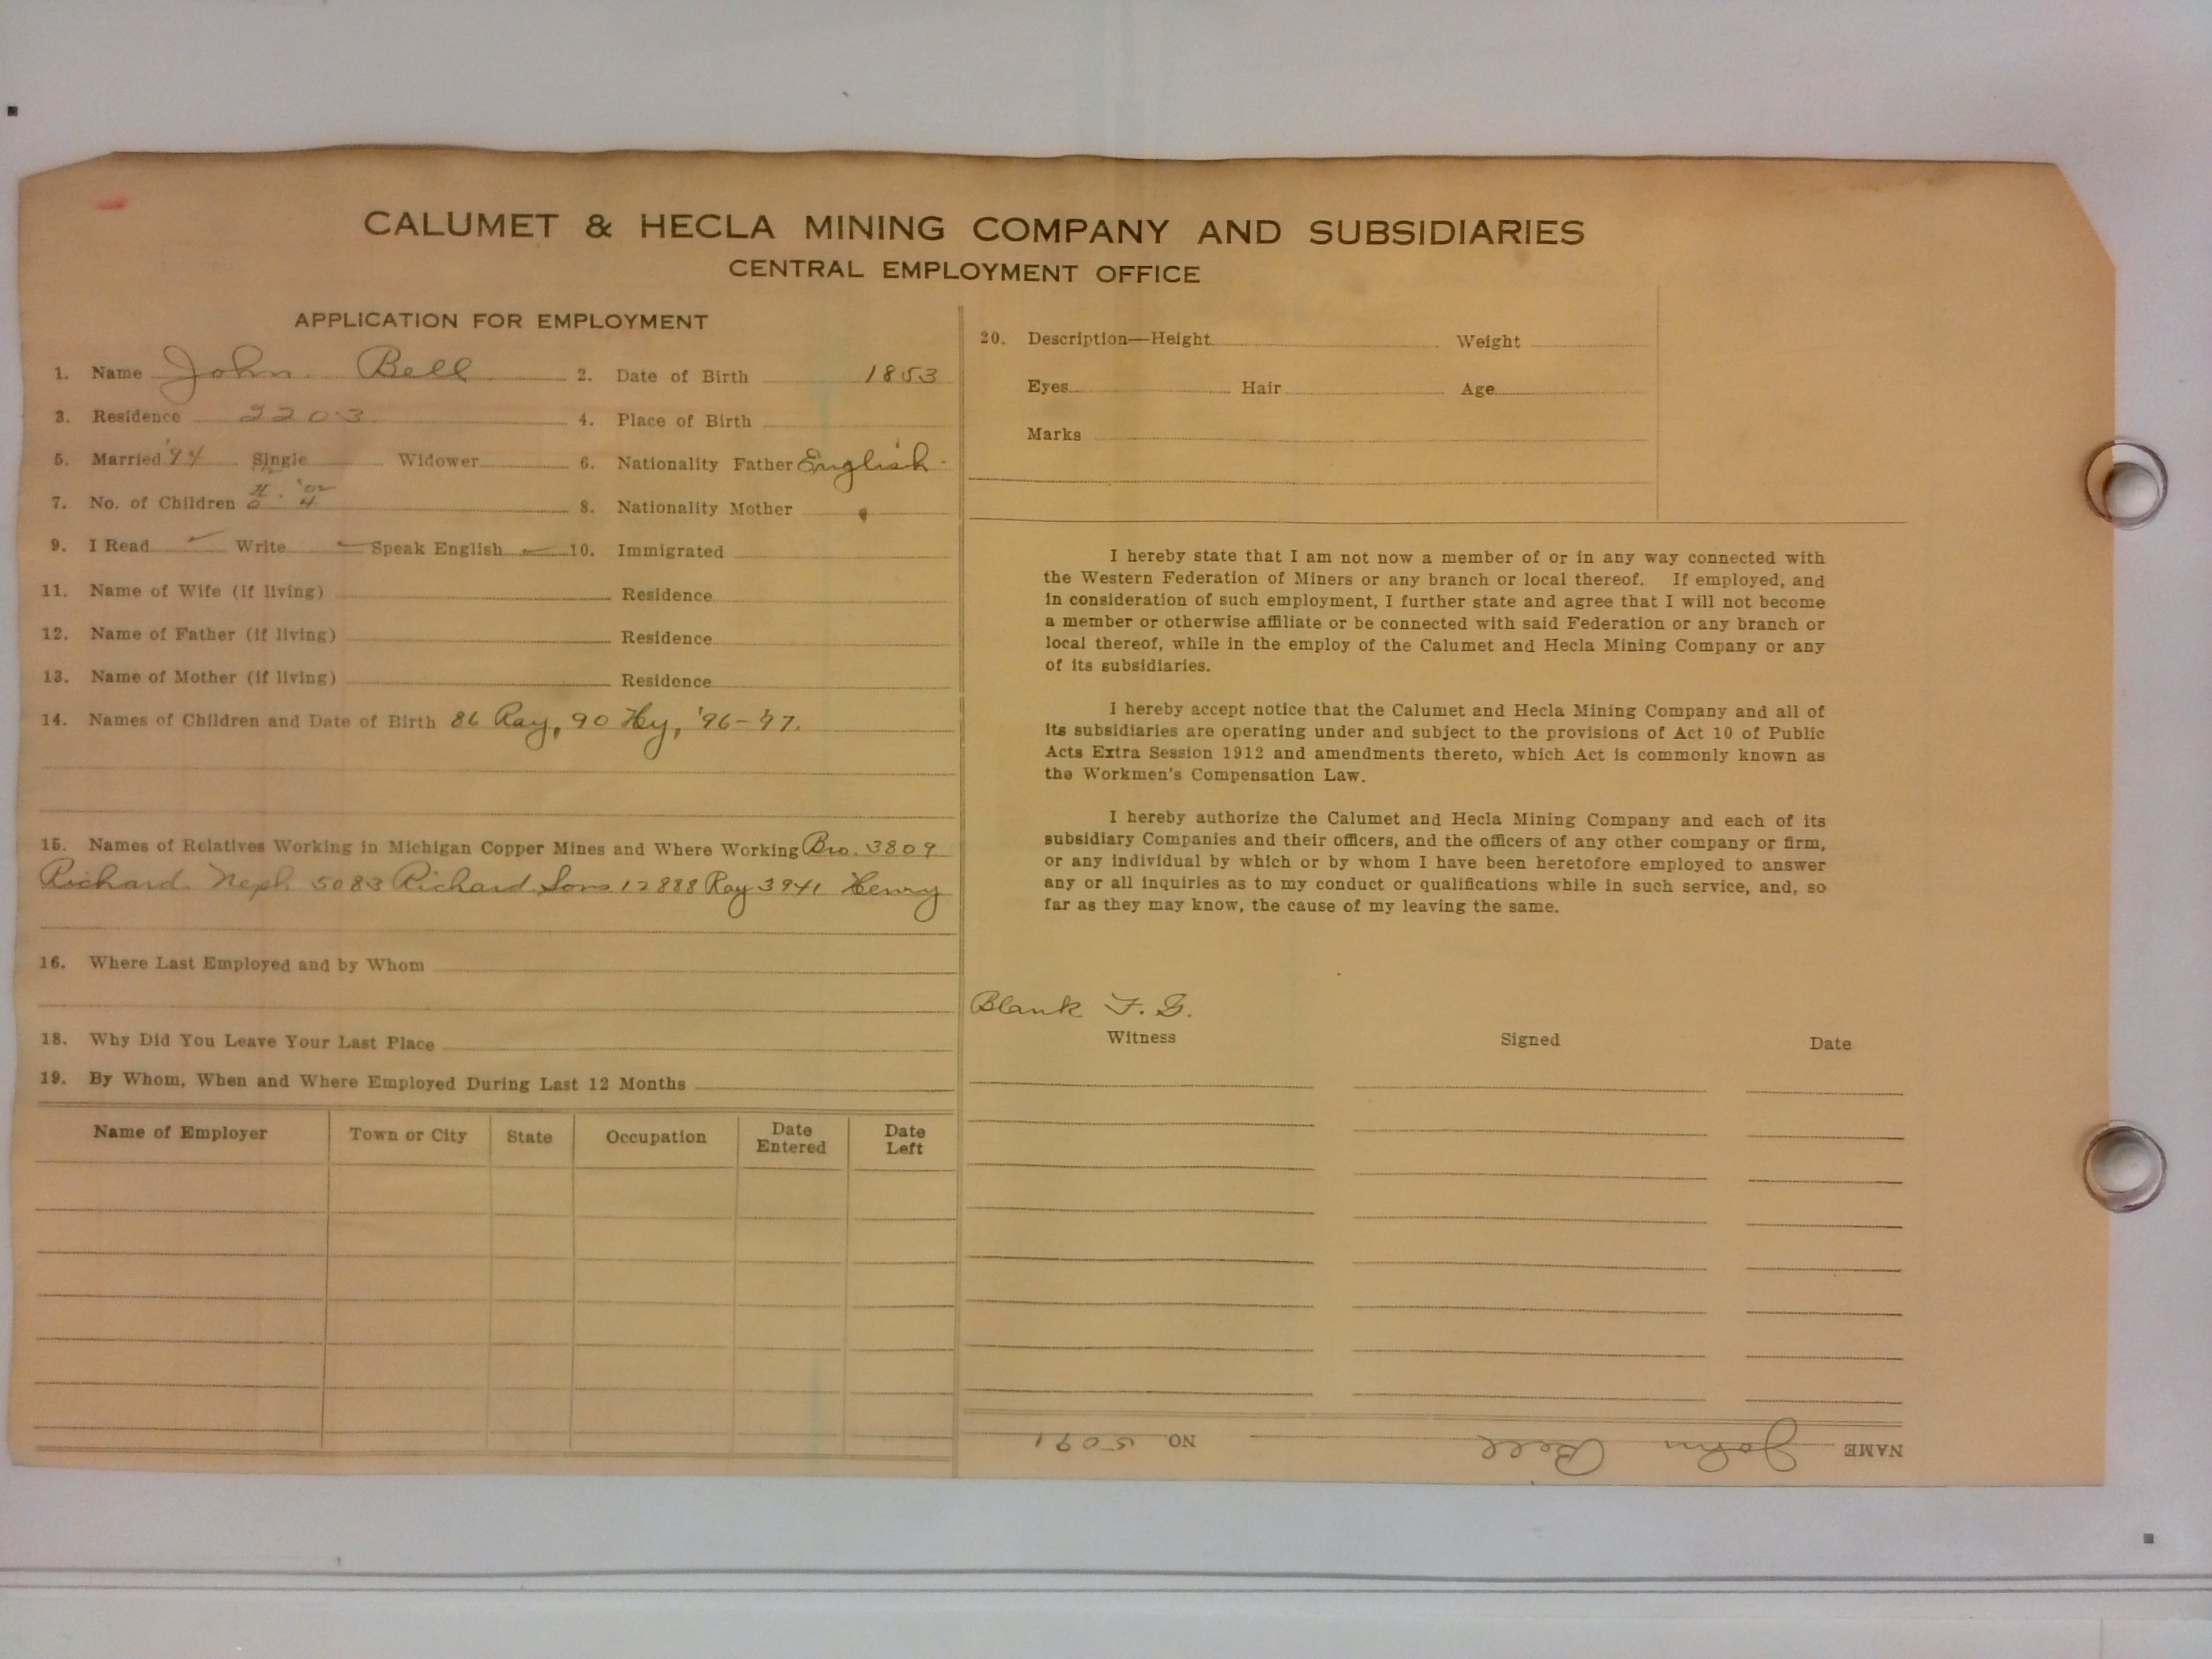 CALUMET & HECLA MINING COMPANY AND SUBSIDIARIES
CENTRAL EMPLOYMENT OFFICE
APPLICATION FOR EMPLOYMENT
1. Name John Bell 2. Date of Birth 1853
3. Residence 2203 4. Place of Birth
5. Married '94 Single Widower 6. Nationality Father English
7. No. of Children 4 8. Nationality Mother "
9. I Read ✓ Write ✓ Speak English ✓ 10. Immigrated
11. Name of Wife (if living) Residence
12. Name of Father (if living) Residence
13. Name of Mother (if living) Residence
14. Names of Children and Date of Birth 86 Ray, 90 Hy, '96-'97.
15. Names of Relatives Working in Michigan Copper Mines and Where Working Bro. 3809
Richard. Neph 5083 Richard. Sons 12888 Ray 3941 Henry
16. Where Last Employed and by Whom
18. Why Did You Leave Your Last Place
19. By Whom, When and Where Employed During Last 12 Months
Name of Employer Town or City State Occupation Date Entered Date Left
20. Description—Height Weight
Eyes Hair Age
Marks
I hereby state that I am not now a member of or in any way connected with
the Western Federation of Miners or any branch or local thereof. If employed, and
in consideration of such employment, I further state and agree that I will not become
a member or otherwise affiliate or be connected with said Federation or any branch or
local thereof, while in the employ of the Calumet and Hecla Mining Company or any
of its subsidiaries.
I hereby accept notice that the Calumet and Hecla Mining Company and all of
its subsidiaries are operating under and subject to the provisions of Act 10 of Public
Acts Extra Session 1912 and amendments thereto, which Act is commonly known as
the Workmen's Compensation Law.
I hereby authorize the Calumet and Hecla Mining Company and each of its
subsidiary Companies and their officers, and the officers of any other company or firm,
or any individual by which or by whom I have been heretofore employed to answer
any or all inquiries as to my conduct or qualifications while in such service, and, so
far as they may know, the cause of my leaving the same.
Blank F. G.
Witness Signed Date
NAME John Bell NO. 5091